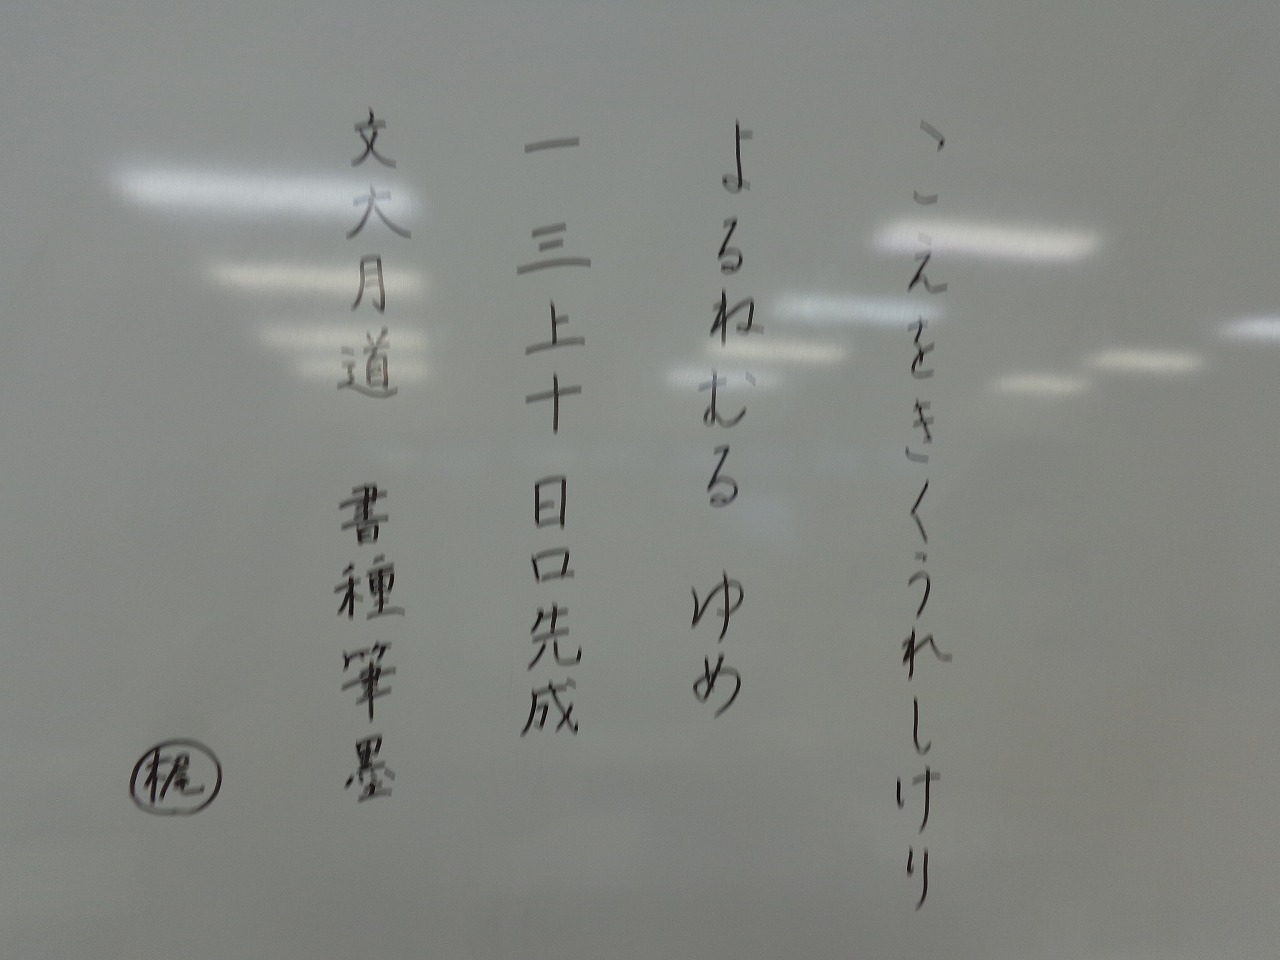 丶こえをきくうれしけり
よるねむる ゆめ
一三上十目口先成
文大月道 書種筆墨
梶